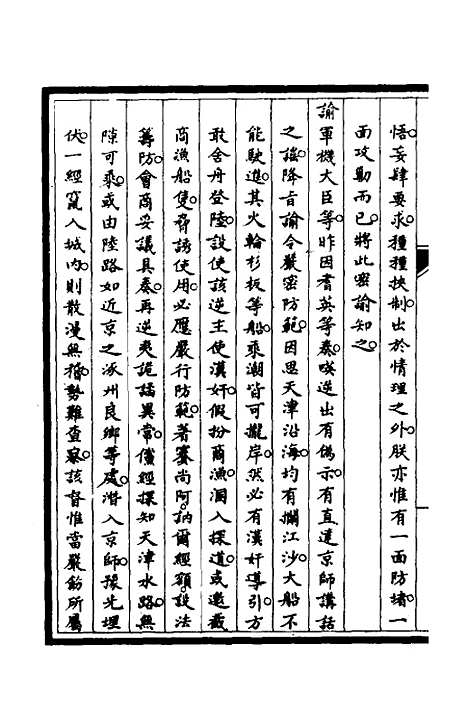 悟妄肆要求種種挾制出於情理之外朕亦惟有一面防堵一
面攻勦而已將此密諭知之
諭軍機大臣等昨因耆英等奏暎逆出有偽示有直達京師講話
之語降旨諭令嚴密防範因思天津沿海均有攔江沙大船不
能駛進其火輪杉板等船乘潮皆可攏岸然必有漢奸導引方
敢舍舟登陸設使該逆主使漢奸假扮商漁溷入探道或邀截
商漁船隻脅誘使用必應嚴行防範著賽尚阿訥爾經額設法
籌防會商妥議具奏再逆夷詭譎異常儻經探知天津水路無
隙可乘或由陸路如近京之涿州良鄉等處潛入京師豫先埋
伏一經竄入城內則散漫無稽勢難查察該督惟當嚴飭所屬